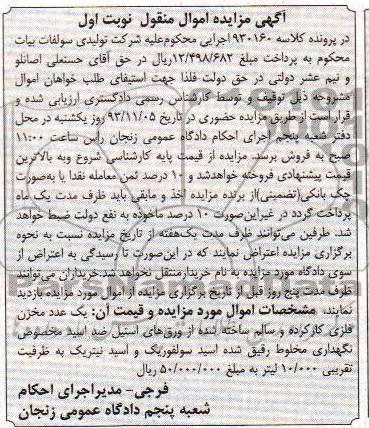 آگهی مزایده اموال منقول نوبت اول
در پرونده کلاسه ۹۳۰۱۶۰ اجرایی محکوم‌علیه شرکت تولیدی سولفات بیات
محکوم به پرداخت مبلغ ۱۲/۴۹۸/۶۸۲ریال در حق آقای حسنعلی اصانلو
و نیم عشر دولتی در حق دولت فلذا جهت استیفای طلب خواهان اموال
مشروحه ذیل توقیف و توسط کارشناس رسمی دادگستری ارزیابی شده و
قرار است از طریق مزایده حضوری در تاریخ ۹۳/۱۱/۰۵ روز یکشنبه در محل
دفتر شعبه پنجم اجرای احکام دادگاه عمومی زنجان راس ساعت ۱۱:۰۰
صبح به فروش برسد. مزایده از قیمت پایه کارشناسی شروع وبه بالاترین
قیمت پیشنهادی فروخته خواهدشد و ۱۰ درصد ثمن معامله نقدا یا به‌صورت
چک بانکی(تضمینی)از برنده مزایده اخذ و مابقی باید ظرف مدت یک ماه
پرداخت گردد در غیراین‌صورت ۱۰ درصد ماخوذه به نفع دولت ضبط خواهد
شد. طرفین می‌توانند ظرف مدت یک‌هفته از تاریخ مزایده نسبت به نحوه
برگزاری مزایده اعتراض نمایند که در این‌صورت تا رسیدگی به اعتراض از
سوی دادگاه مورد مزایده به نام خریدارمنتقل نخواهد شد.خریداران می‌توانند
ظرف مدت پنج روز قبل از تاریخ برگزاری مزایده از اموال مورد مزایده بازدید
نمایند. مشخصات اموال مورد مزایده و قیمت آن: یک عدد مخزن
فلزی کارکرده و سالم ساخته شده از ورق‌های استیل ضد اسید مخصوص
نگهداری مخلوط رقیق شده اسید سولفوریک و اسید نیتریک به ظرفیت
تقریبی ۱۰/۰۰۰ لیتر به مبلغ ۵۰/۰۰۰/۰۰۰ ریال
فرجی- مدیراجرای احکام
شعبه پنجم دادگاه عمومی زنجان